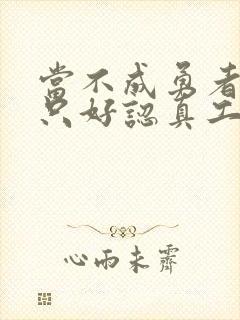 當不成勇者
只好認真工
心雨未霽